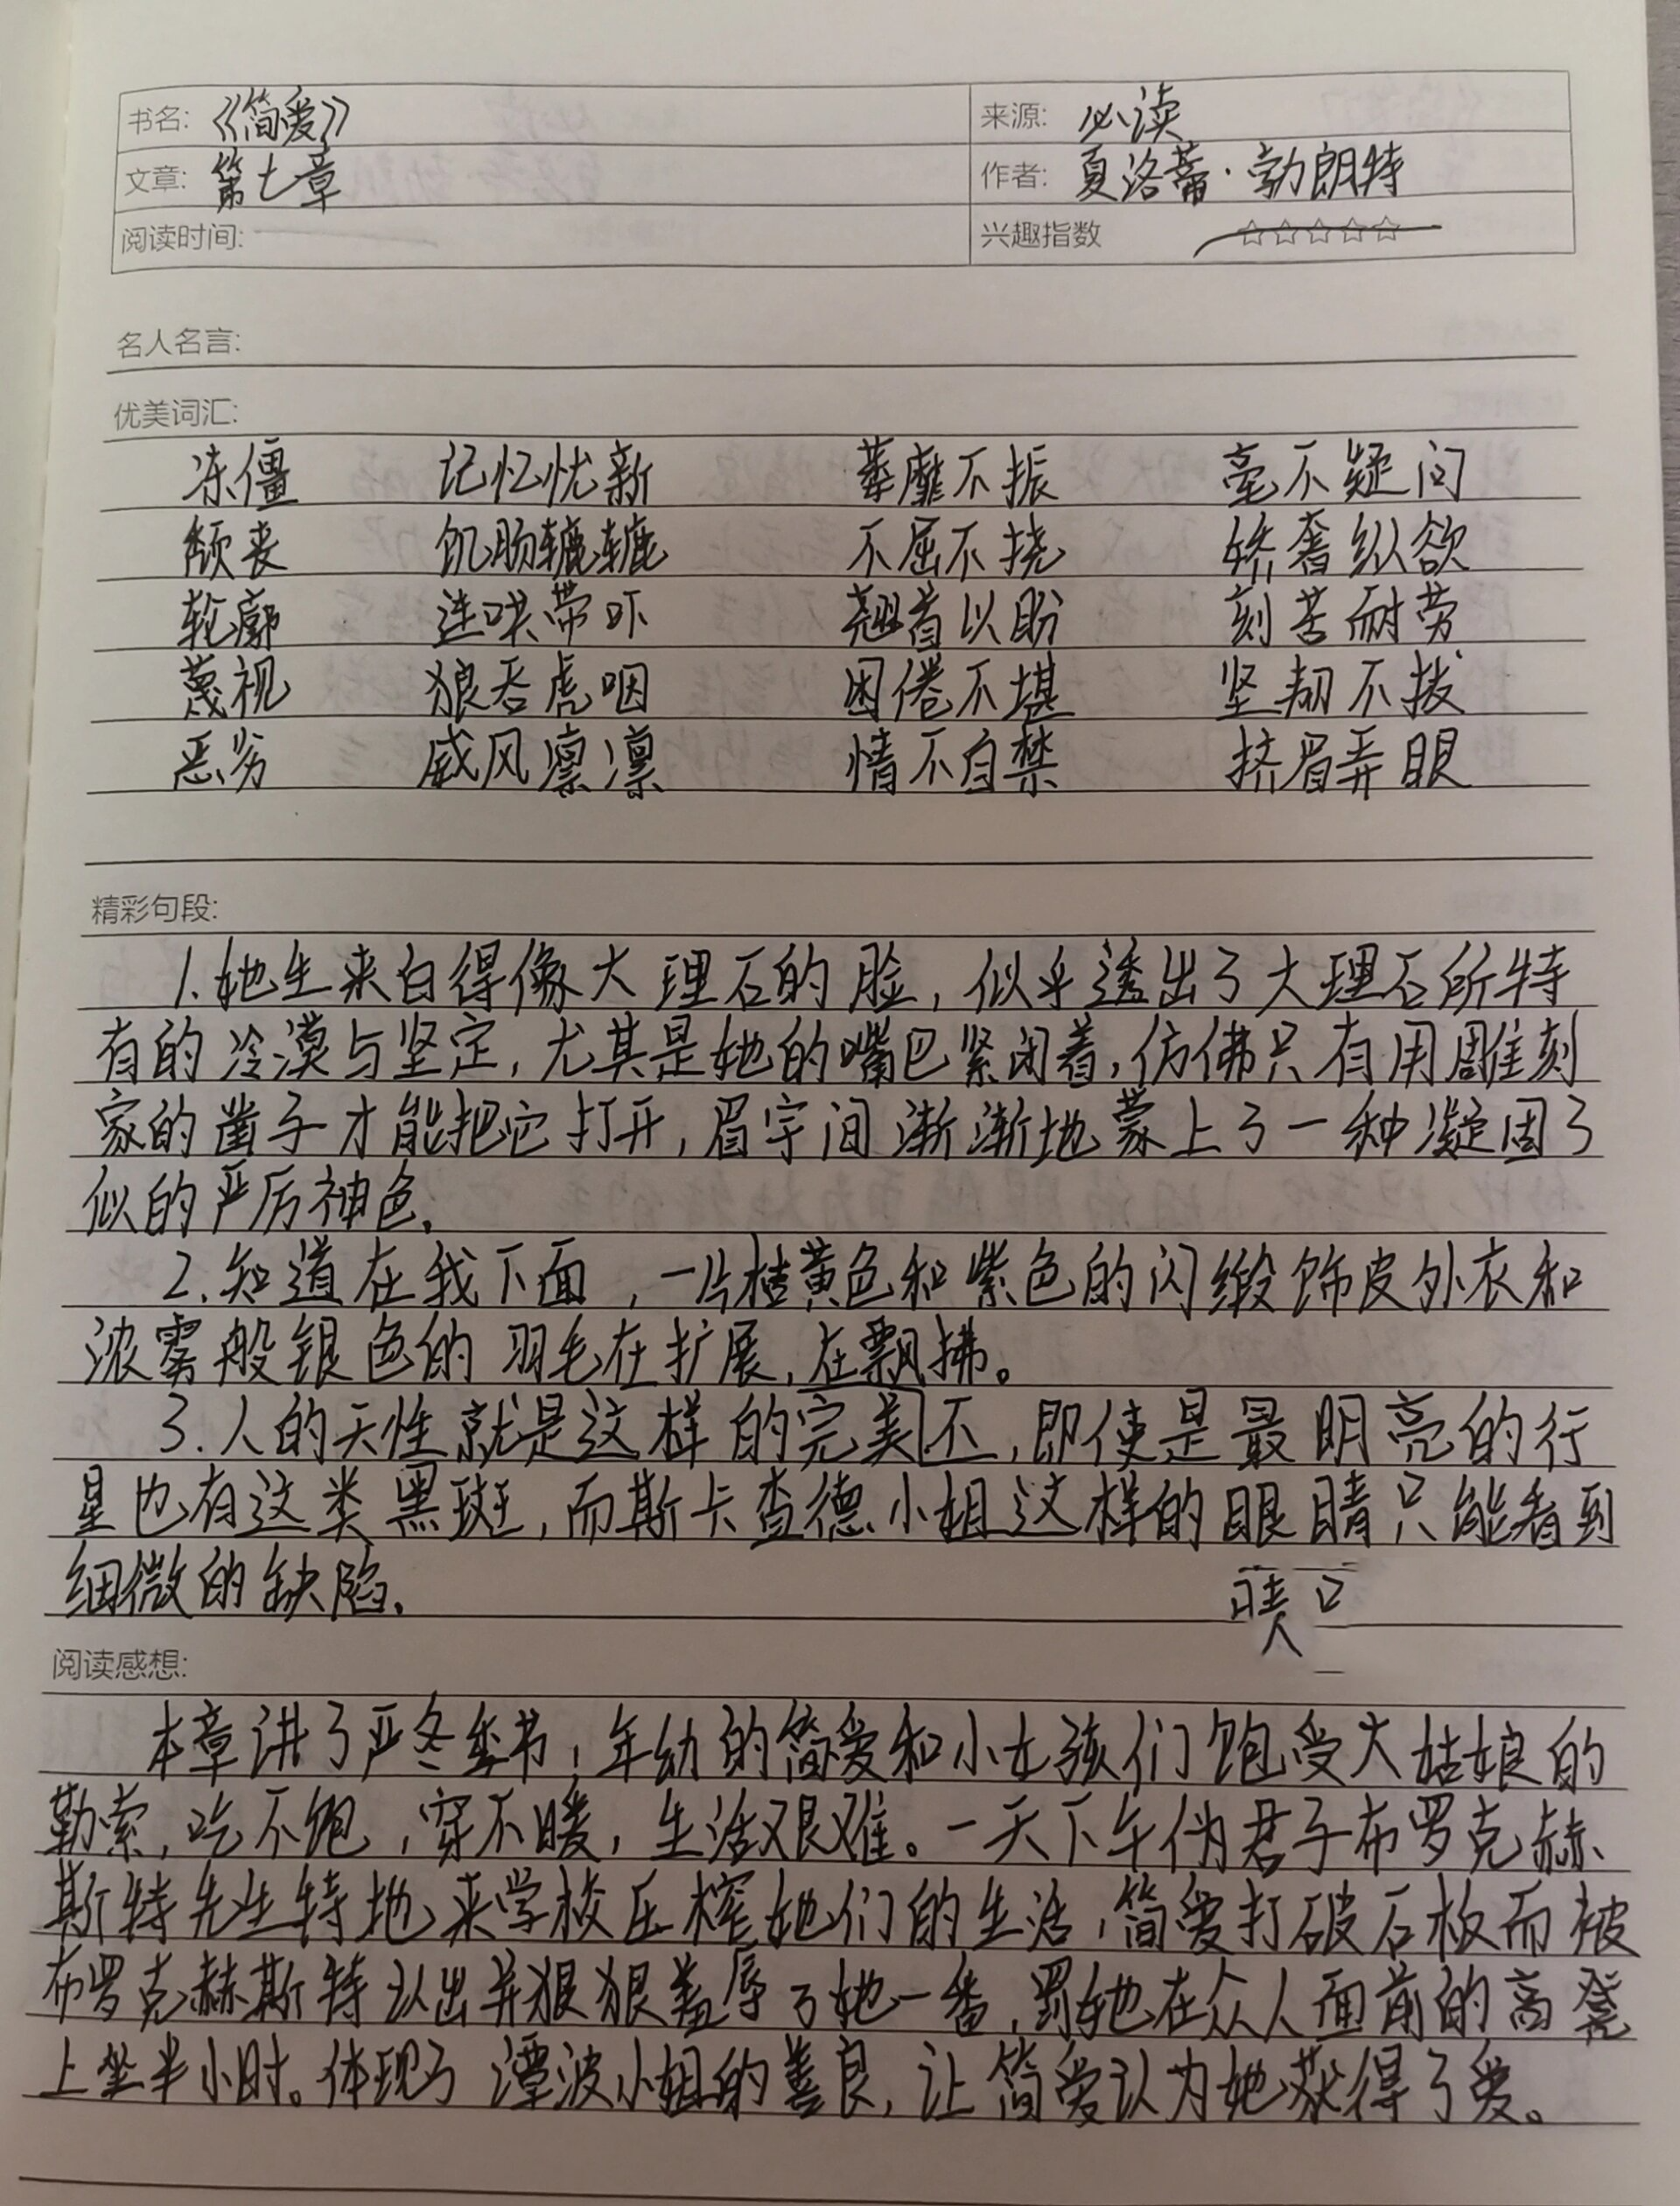 书名: 《简爱》 来源: 必读
文章: 第七章 作者: 夏洛蒂·勃朗特
阅读时间: 兴趣指数 ☆☆☆☆☆
名人名言:
优美词汇:
冻僵 记忆忧新 萎靡不振 毫不疑问
颓丧 饥肠辘辘 不屈不挠 娇奢纵欲
轮廓 连哄带吓 翘首以盼 刻苦耐劳
蔑视 狼吞虎咽 困倦不堪 坚韧不拔
恶劣 威风凛凛 情不自禁 挤眉弄眼
精彩句段:
1.她生来白得像大理石的脸,似乎透出了大理石所特
有的冷漠与坚定,尤其是她的嘴巴紧闭着,仿佛只有用雕刻
家的凿子才能把它打开,眉宇间渐渐地蒙上了一种凝固了
似的严厉神色.
2.知道在我下面,一片桔黄色和紫色的闪缎饰皮外衣和
浓雾般银色的羽毛在扩展,在飘拂。
3.人的天性就是这样的完美不,即使是最明亮的行
星也有这类黑斑,而斯卡查德小姐这样的眼睛只能看到
细微的缺陷.
阅读感想:
本章讲了严冬季节,年幼的简爱和小女孩们饱受大姑娘的
勒索,吃不饱,穿不暖,生活艰难。一天下午伪君子布罗克赫
斯特先生特地来学校压榨她们的生活,简爱打破石板而被
布罗克赫斯特认出并狠狠羞辱了她一番,罚她在众人面前的高凳
上坐半小时。体现了潭波小姐的善良,让简爱认为她获得了爱。